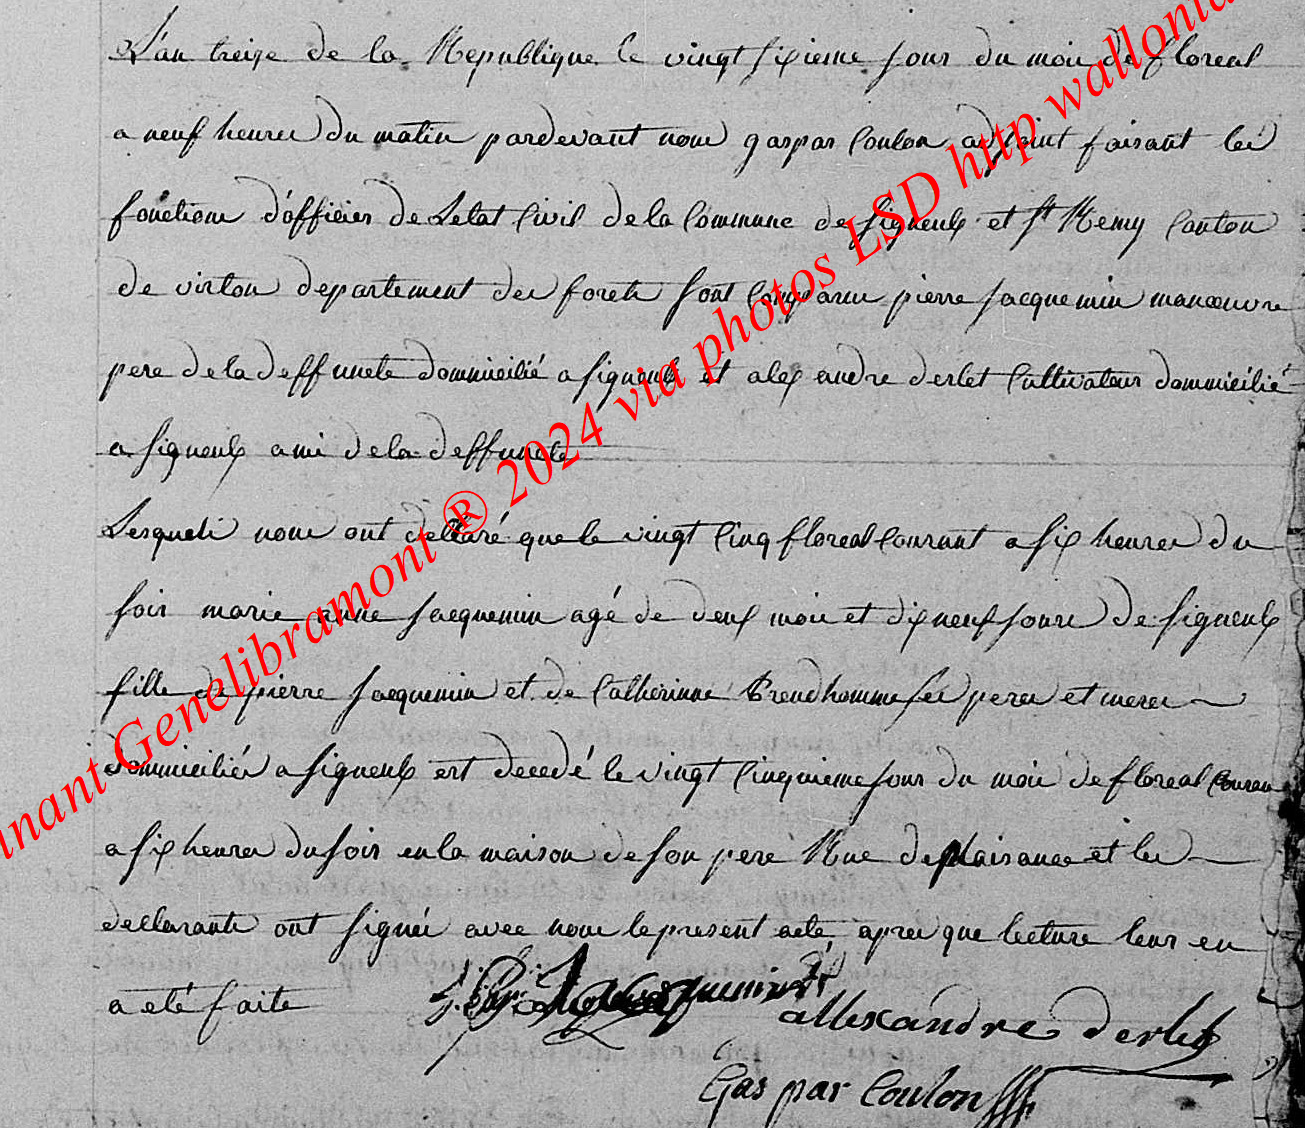 L'an treize de la Republique le vingt sixieme jour du mois de floreal
a neuf heures du matin pardevant nous gaspar Coulon adjoint faisant les
fonctions d'officier de Letat Civil de la Commune de Signeulx et St Remy Canton
de virton departement des forets sont Comparus pierre jacquemin manoeuvre
pere de la deffuncte dommicilié a Signeulx et alexandre derlet Cultivateur dommicilié
a Signeulx ami de la deffuncte
Lesquels nous ont declaré que le vingt Cinq floreal Courant a six heures du
soir marie anne jacquemin agé de deux mois et dix neuf jours de Signeulx
fille de pierre jacquemin et de Catherinne Preudhomme ses peres et meres
dommiciliés a Signeulx est decedé le vingt Cinquieme jour du mois de floreal Couran
a six heures du soir en la maison de son pere Rue de plaisance et les
declarants ont signés avec nous le present acte apres que lecture leur en
a eté faite
jacquemin
allexandre derlet
Gaspar Coulon
nant Genelibramont ® 2024 via photos LSD http wallonia